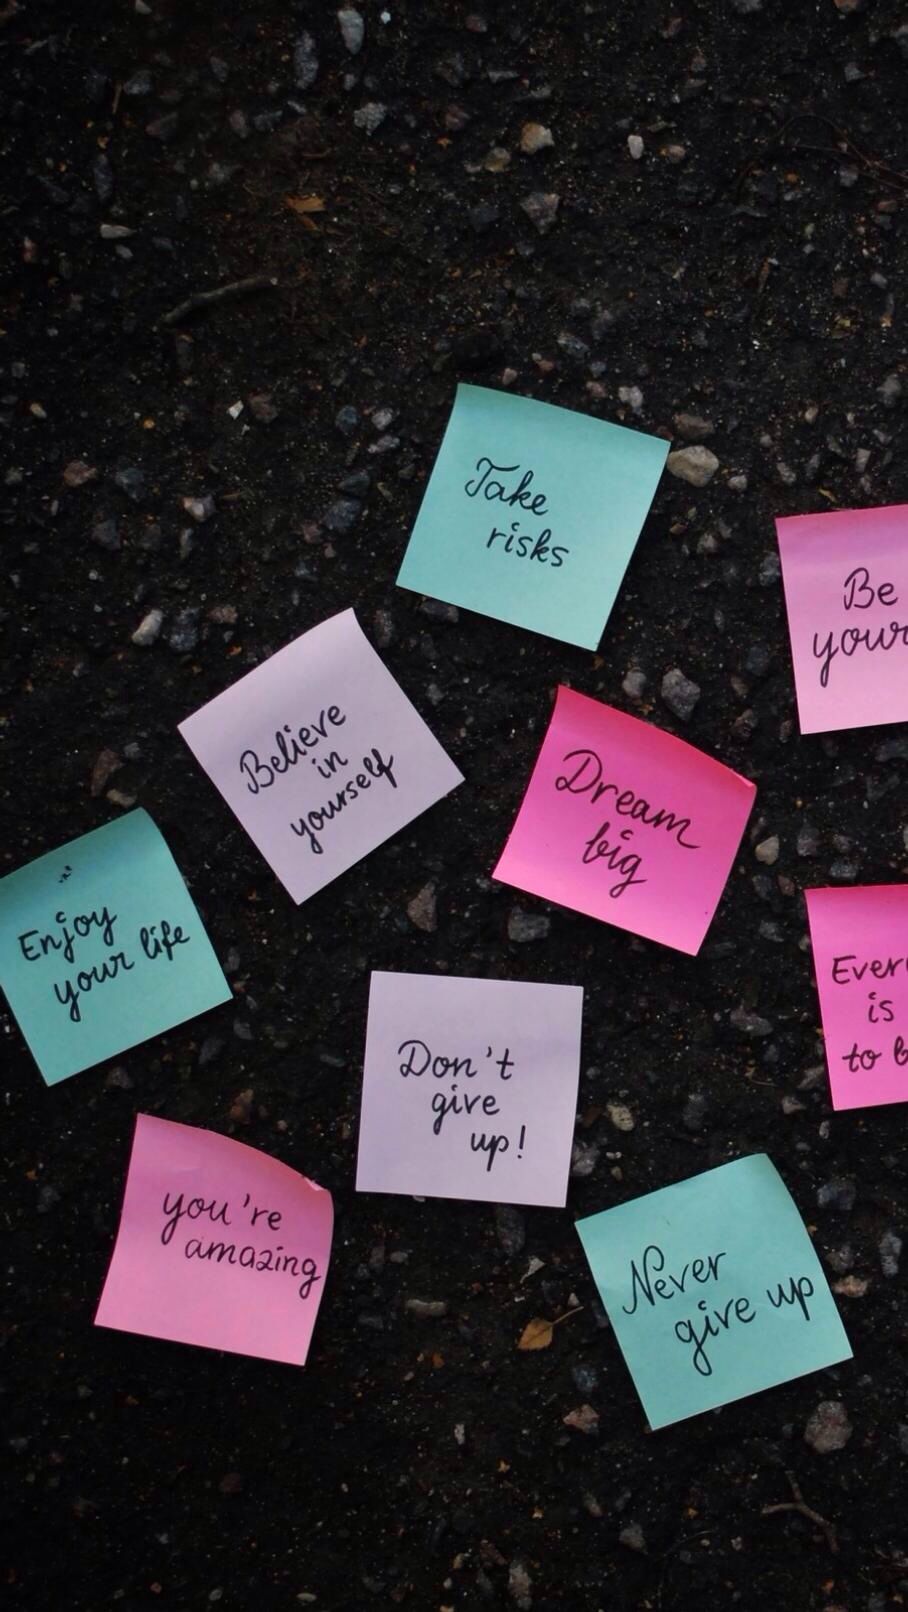 Take
risks
Be
Believe
in
yourself
Dream
big
Enjoy
your life
is
to
Don't
give
up!
you're
amazing
Never
give up